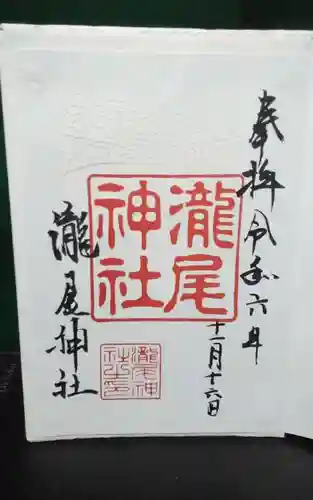 奉拝 令和六年
十一月十六日
瀧尾
神社
瀧尾神社
瀧尾神
社之印